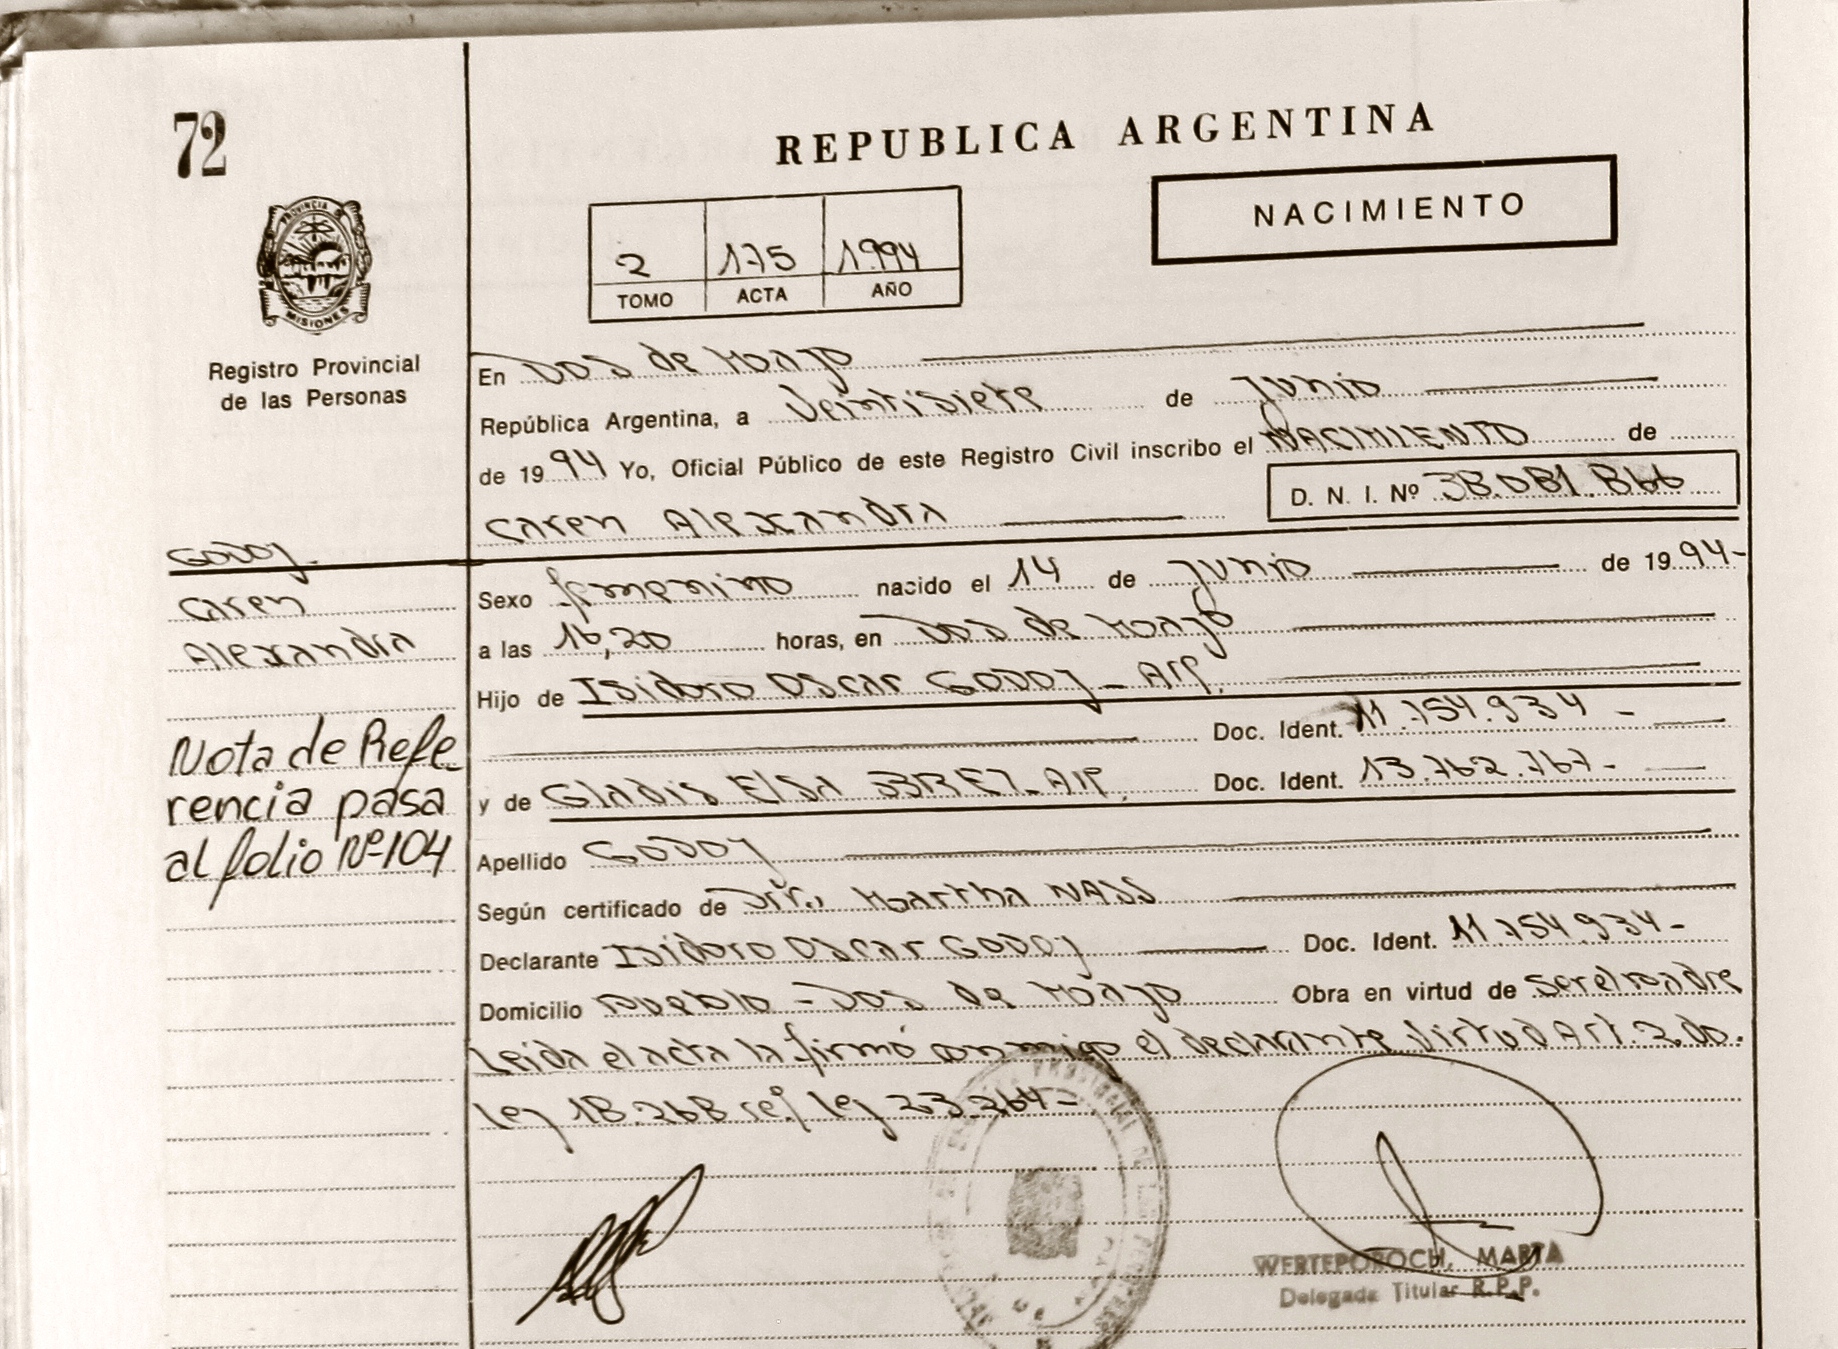 72
REPUBLICA ARGENTINA
NACIMIENTO
2 175 1.994
TOMO ACTA AÑO
PROVINCIA DE
MISIONES
Registro Provincial
de las Personas
En Dos de Mayo
República Argentina, a Veintisiete de Junio
de 1994 Yo, Oficial Público de este Registro Civil inscribo el NACIMIENTO de
D. N. I. Nº 38.081.866
Caren Alexandra
Godoy
Caren
Alexandra
Sexo femenino nacido el 14 de Junio de 1994-
a las 16,20 horas, en Dos de Mayo
Hijo de Isidoro Oscar GODOY - Arg.
Doc. Ident. 11.754.934 -
y de Gladis Elsa Arg. Doc. Ident. 13.762.767-
Nota de Refe-
rencia pasa
al folio Nº 104
Apellido GODOY
Según certificado de Dra. Martha NASS
Declarante Isidoro Oscar GODOY Doc. Ident. 11.754.934-
Domicilio pueblo - Dos de Mayo Obra en virtud de ser el padre
Leida el acta la firmó conmigo el declarante Virtud Art. 2do.
Ley 18.248 ref. ley 23.264=
WERTEPOROCH, MARTA
Delegada Titular R.P.P.